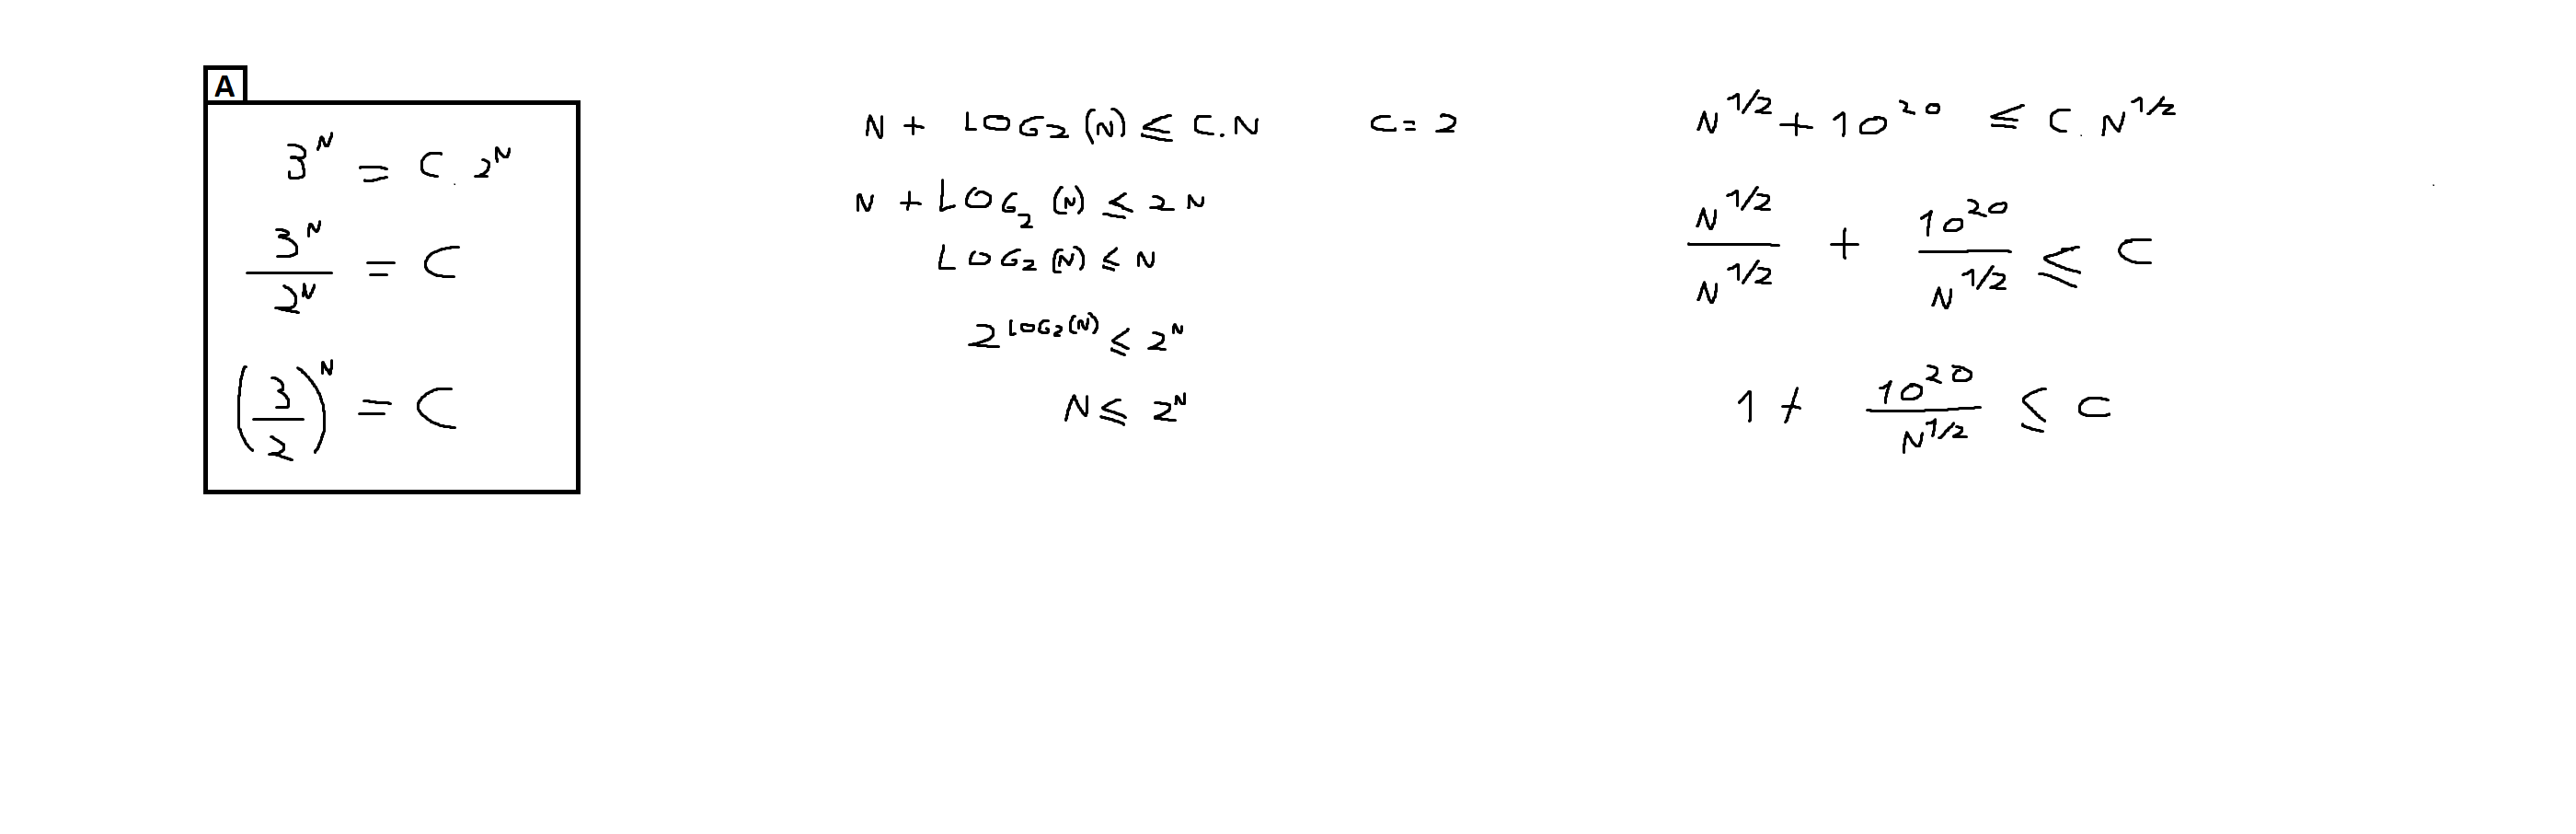 A
3^N = C . 2^N
3^N / 2^N = C
(3/2)^N = C
N + LOG2 (N) ≤ C.N C = 2
N + LOG₂ (N) ≤ 2N
LOG2 (N) ≤ N
2^LOG2(N) ≤ 2^N
N ≤ 2^N
N^1/2 + 10^20 ≤ C . N^1/2
N^1/2 / N^1/2 + 10^20 / N^1/2 ≤ C
1 + 10^20 / N^1/2 ≤ C